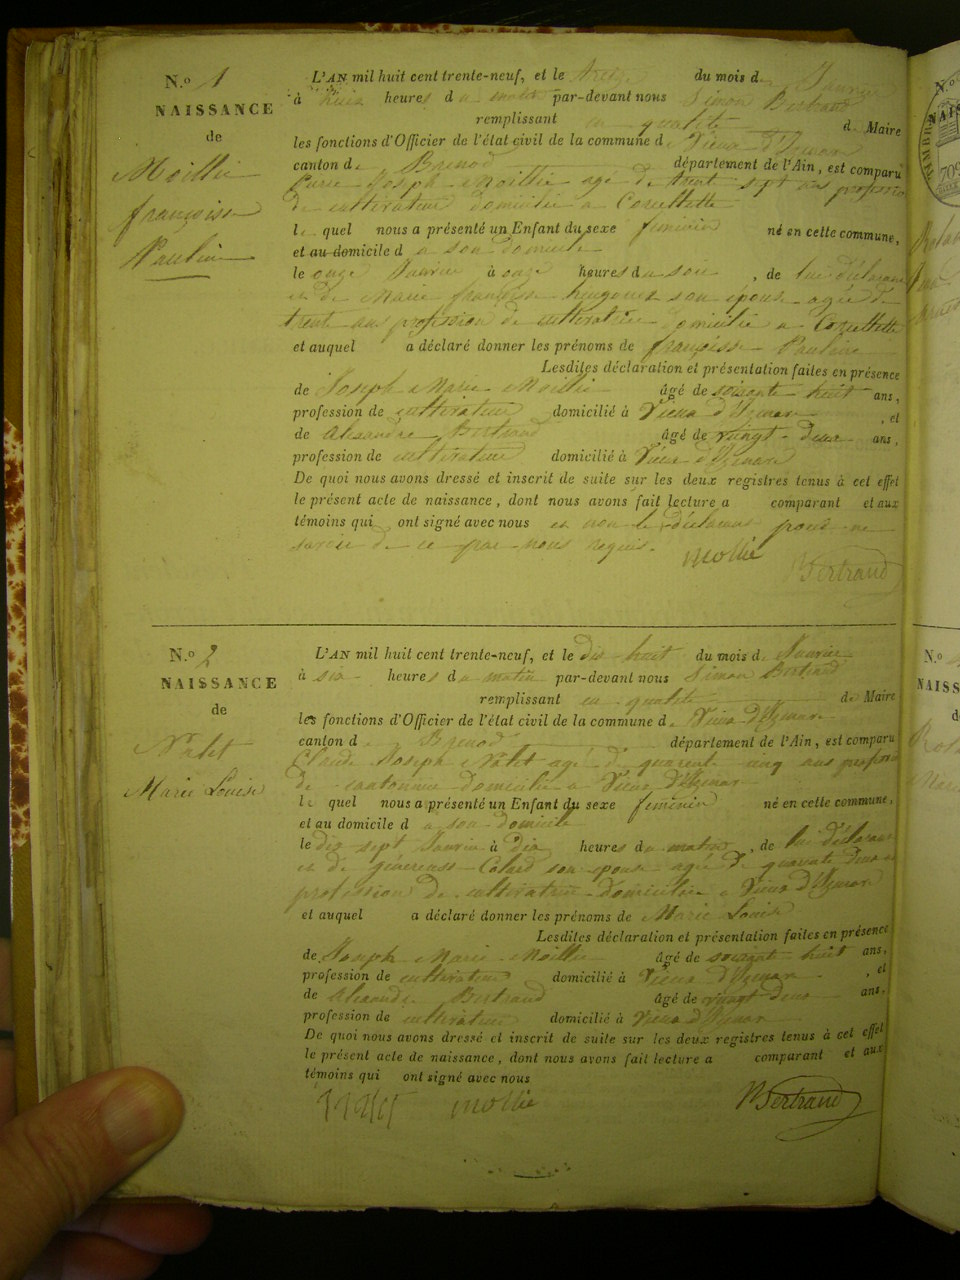 N.º 1
NAISSANCE
de
Moillie
françoise
Pauline
L'AN mil huit cent trente-neuf, et le treize du mois de Janvier
à huit heures du matin par-devant nous Simon Bertrand
remplissant en qualité de Maire
les fonctions d'Officier de l'état civil de la commune de Vieux d'Izenave
canton de Brenod département de l'Ain, est comparu
Joseph Moillie agé de trent sept ans profession
de cultivateur domicilié a Corcellette
le quel nous a présenté un Enfant du sexe feminin né en cette commune,
et au domicile d a son domicile
le onze Janvier à onze heures du soir, de lui déclarant
et de Marie françoise hugonet son épouse agée de
trent ans profession de cultivatrice domicilié a Corcellette
et auquel a déclaré donner les prénoms de françoise Pauline
Lesdites déclaration et présentation faites en présence
de Joseph Marie Moillie âgé de soixante huit ans,
profession de cultivateur domicilié à Vieux d'Izenave, et
de alexandre Bertrand âgé de vingt-deux ans,
profession de cultivateur domicilié à Vieux d'Izenave
De quoi nous avons dressé et inscrit de suite sur les deux registres tenus à cet effet
le présent acte de naissance, dont nous avons fait lecture a comparant et aux
témoins qui ont signé avec nous et non le déclarant pour ne
savoir de ce par nous requis.
Mollie
Bertrand
N.º 2
NAISSANCE
de
Nalet
Marie Louise
L'AN mil huit cent trente-neuf, et le dix huit du mois de Janvier
à six heures du matin par-devant nous Simon Bertrand
remplissant en qualité de Maire
les fonctions d'Officier de l'état civil de la commune de Vieux d'Izenave
canton de Brenod département de l'Ain, est comparu
Claude Joseph Nalet agé de quarente cinq ans profession
de cantonnier domicilié a Vieux d'Izenave
le quel nous a présenté un Enfant du sexe feminin né en cette commune,
et au domicile d a son domicile
le dix sept Janvier à dix heures du matin, de lui déclarant
et de génereuse Colard son épouse agée de quarante deux ans
profession de cultivatrice domiciliée a Vieux d'Izenave
et auquel a déclaré donner les prénoms de Marie Louise
Lesdites déclaration et présentation faites en présence
de Joseph Marie Moillie âgé de soixante huit ans,
profession de cultivateur domicilié à Vieux d'Izenave, et
de alexandre Bertrand âgé de vingt deux ans,
profession de cultivateur domicilié à Vieux d'Izenave
De quoi nous avons dressé et inscrit de suite sur les deux registres tenus à cet effet
le présent acte de naissance, dont nous avons fait lecture a comparant et aux
témoins qui ont signé avec nous
Mollie
Bertrand